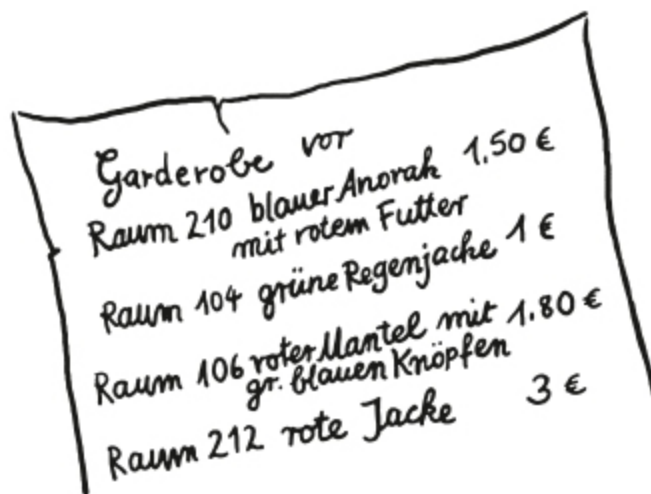 Garderobe vor
Raum 210 blauer Anorak 1,50 €
mit rotem Futter
Raum 104 grüne Regenjacke 1 €
Raum 106 roter Mantel mit 1.80 €
gr. blauen Knöpfen
Raum 212 rote Jacke 3 €